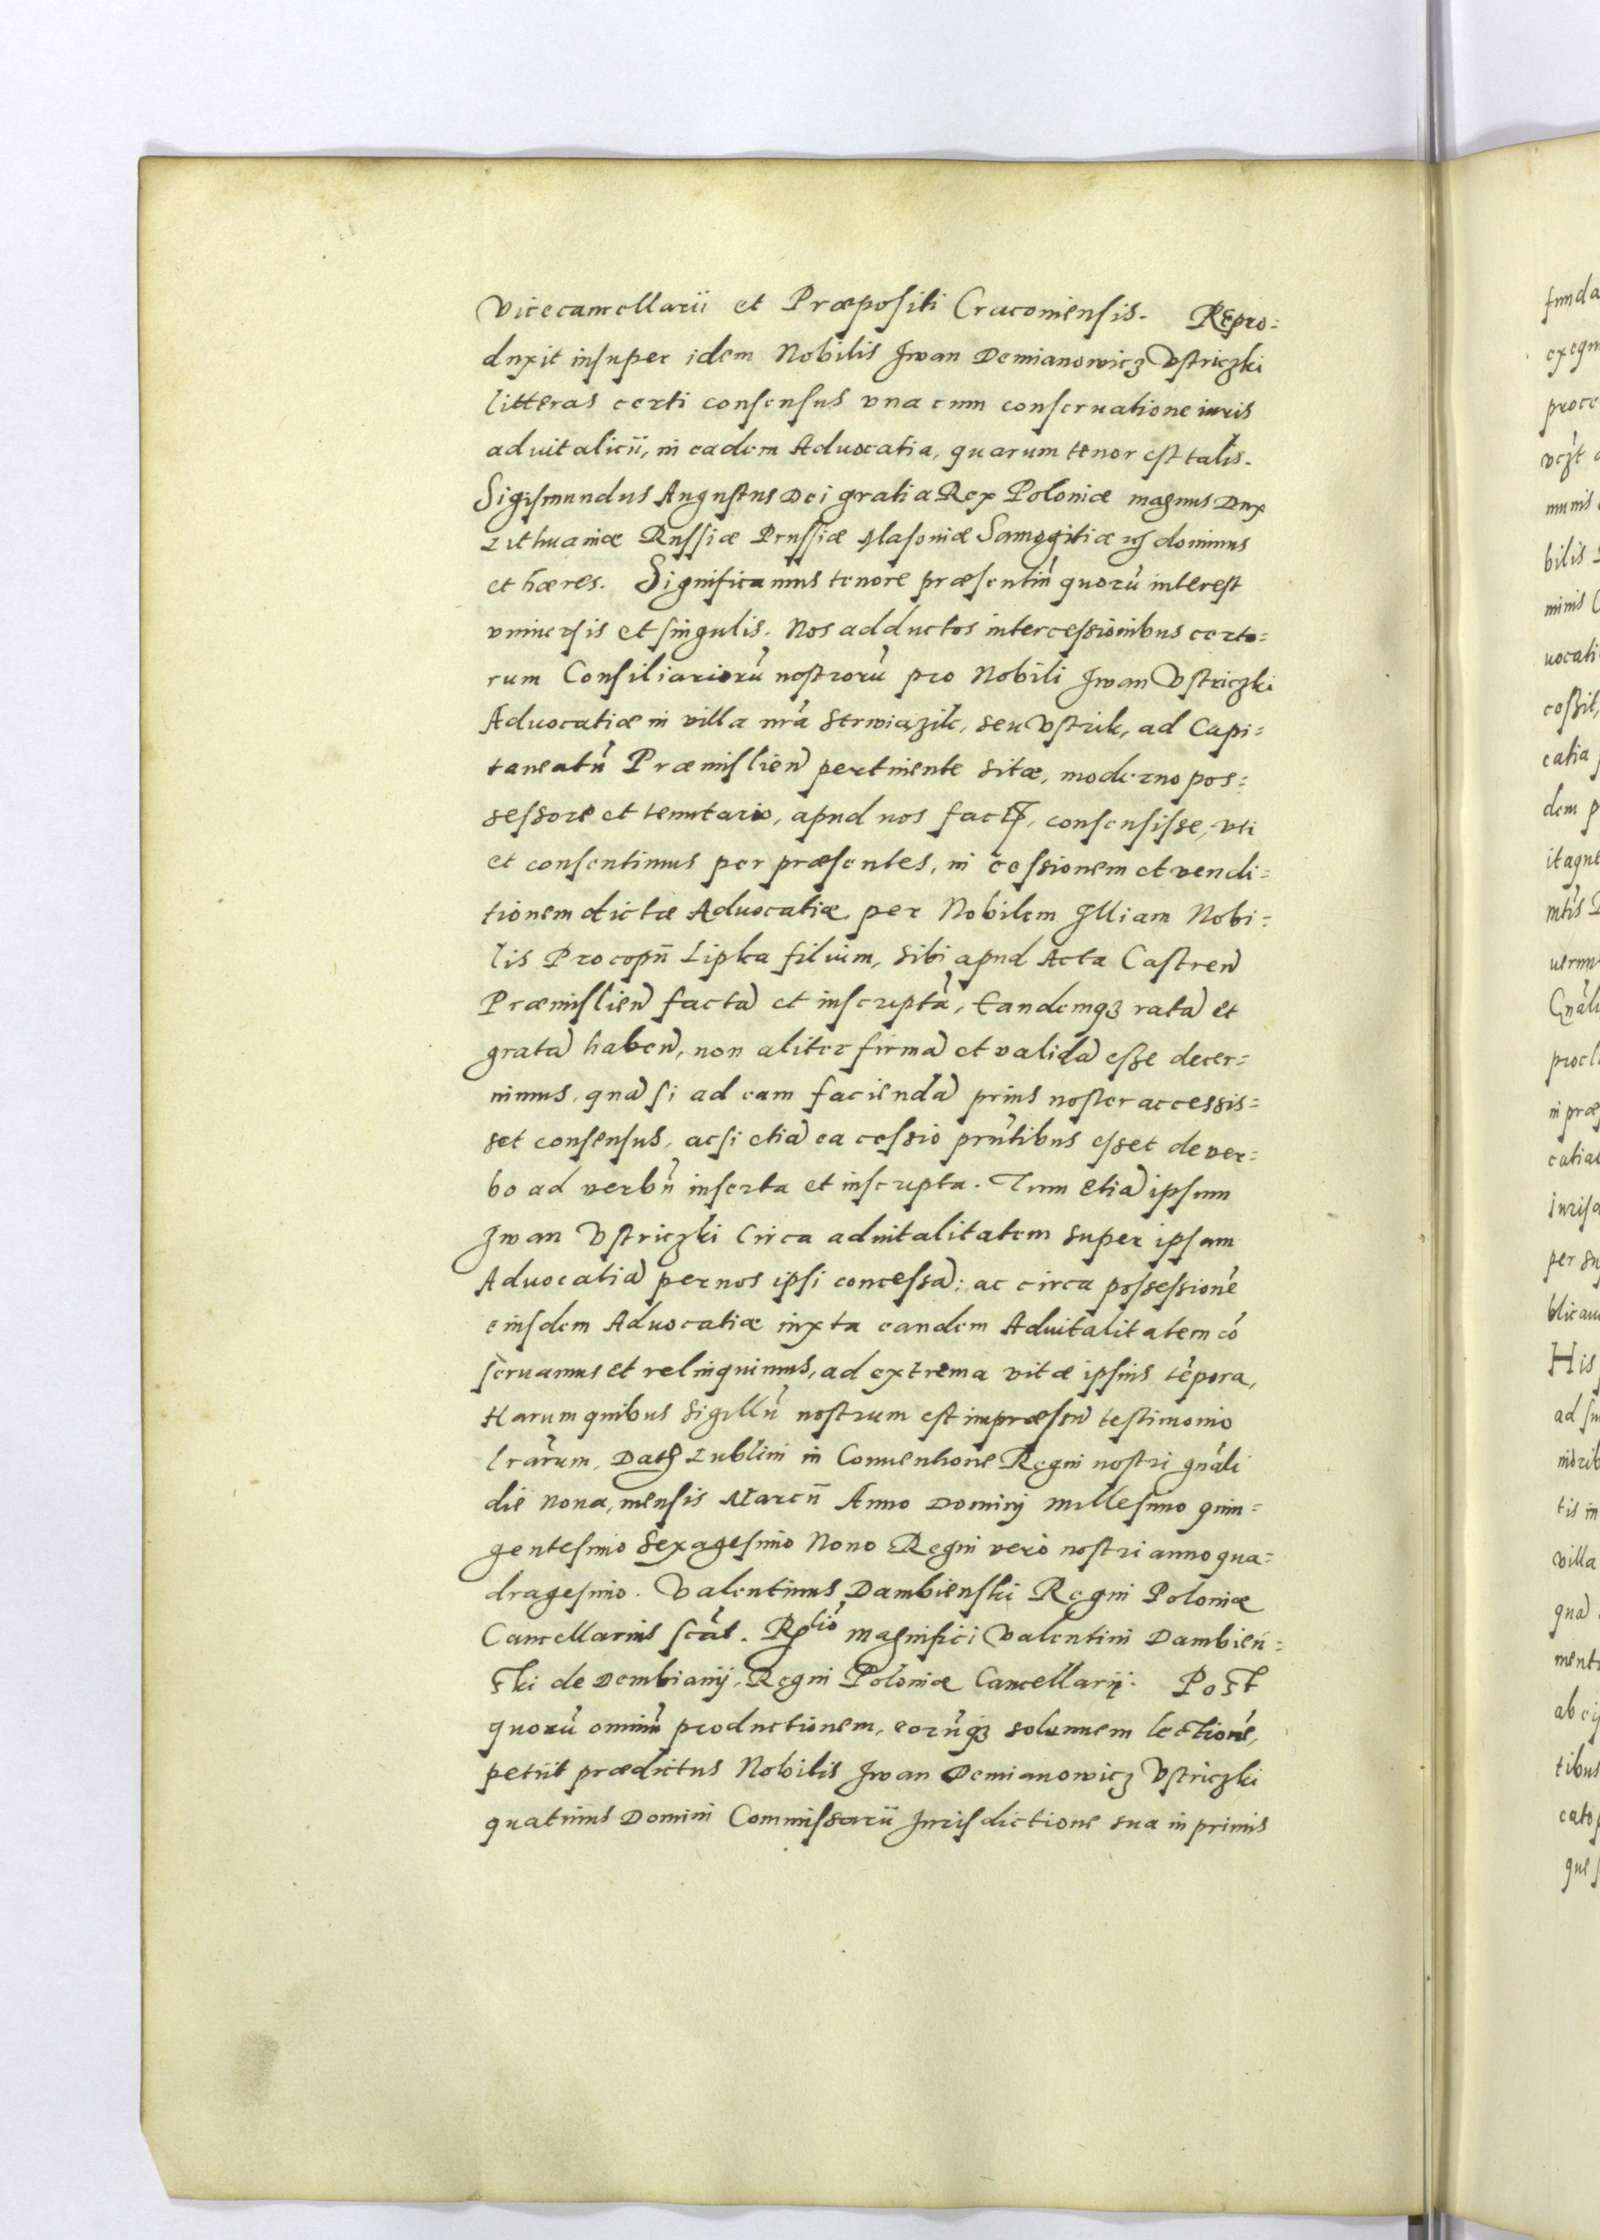 Vicecancellarii et Præpositi Craconiensis. Repro=
duxit insuper idem Nobilis Jwan Demianowicz Vstriczki
litteras certi consensus vna cum conseruatione iuris
aduitalicii, in eadem Aduocatia, quarum tenor est talis.
Sigismundus Augustus Dei gratia Rex Poloniæ magnus Dux
Lithuaniæ Russiæ Prussiæ Masoviæ Samogitiæ dominus
et hæres. Significamus tenore præsentiũ quorũ interest
vniuersis et singulis. Nos adductos intercessionibus certo=
rum Consiliariorũ nostrorũ pro Nobili Jwan Vstriczki
Aduocatiæ in villa nrã Strwiązik, seu Vstrik, ad Capi=
taneatũ Præmislień pertinente sitæ, moderno pos=
sessore et tenutario, apud nos fact, consensisse, vti
et consentimus per præsentes, in cessionem et vendi=
tionem dictæ Aduocatiæ per Nobilem Jlliam Nobi=
lis Procopii Lipka filium, sibi apud Acta Castreñ
Præmislieñ factã et inscriptã, Eandemqz ratã et
gratã habeñ, non aliter firmã et validã esse decer=
nimus, quã si ad eam faciendã prius noster accessis=
set consensus, acsi etiã ea cessio prñtibus esset de ver=
bo ad verbũ inserta et inscripta. Tum etiã ipsum
Jwan Vstriczki Circa aduitalitatem super ipsam
Aduocatiã per nos ipsi concessã; ac circa possessionẽ
eiusdem Aduocatiæ iuxta eandem Aduitalitatem cõ
seruamus et relinquimus, ad extrema vitæ ipsius tẽpora,
Harum quibus Sigillũ nostrum est impræssũ testimonio
lrãrum. Dat Lublini in Conuentione Regni nostri gnãli
die nona, mensis Marcii Anno Domini millesimo quin=
gentesimo Sexagesimo Nono Regni verò nostri anno qua=
dragesimo. Valentinus Dambienski Regni Poloniæ
Cancellarius scãt. Rlio magnifici Valentini Dambień=
ski de Dembiany, Regni Poloniæ Cancellarij. Post
quorũ omniũ productionem, eorũqz solennem lectionẽ,
petiit prædictus Nobilis Jwan Demianowicz Vstriczki
quatinus Domini Commissarii Jurisdictione sua in primis